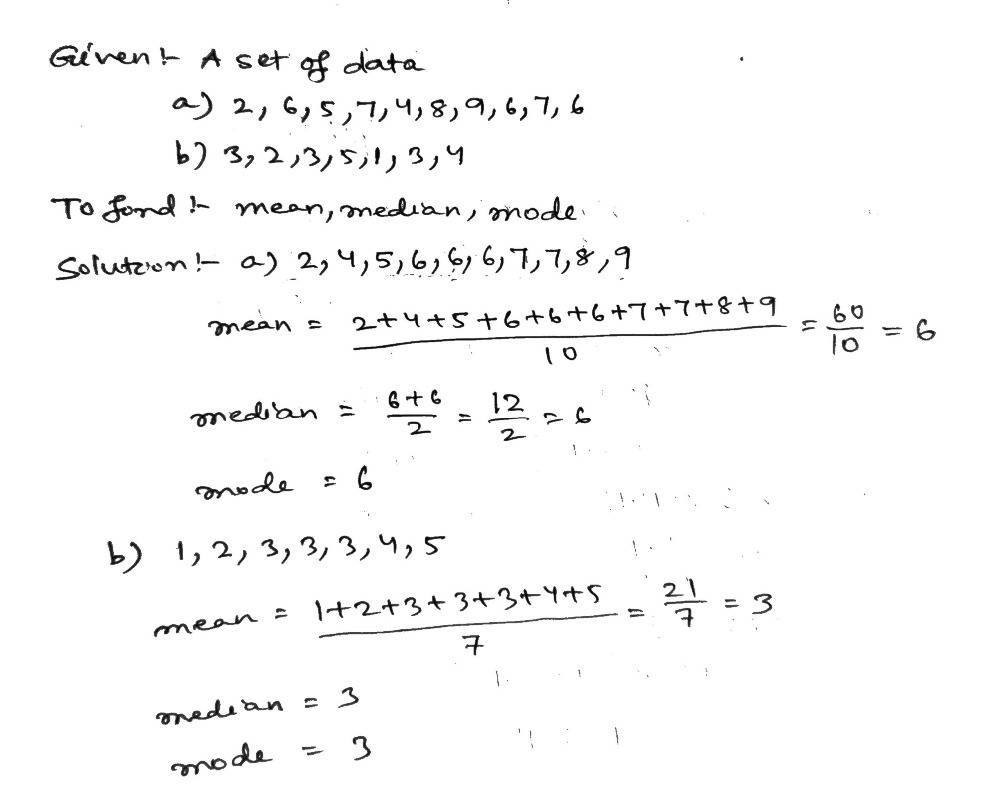 Given :- A set of data
a) 2, 6, 5, 7, 4, 8, 9, 6, 7, 6
b) 3, 2, 3, 5, 1, 3, 4
To fond :- mean, median, mode.
Solution :- a) 2, 4, 5, 6, 6, 6, 7, 7, 8, 9
mean = 2+4+5+6+6+6+7+7+8+9 / 10 = 60/10 = 6
median = 6+6/2 = 12/2 = 6
mode = 6
b) 1, 2, 3, 3, 3, 4, 5
mean = 1+2+3+3+3+4+5 / 7 = 21/7 = 3
median = 3
mode = 3